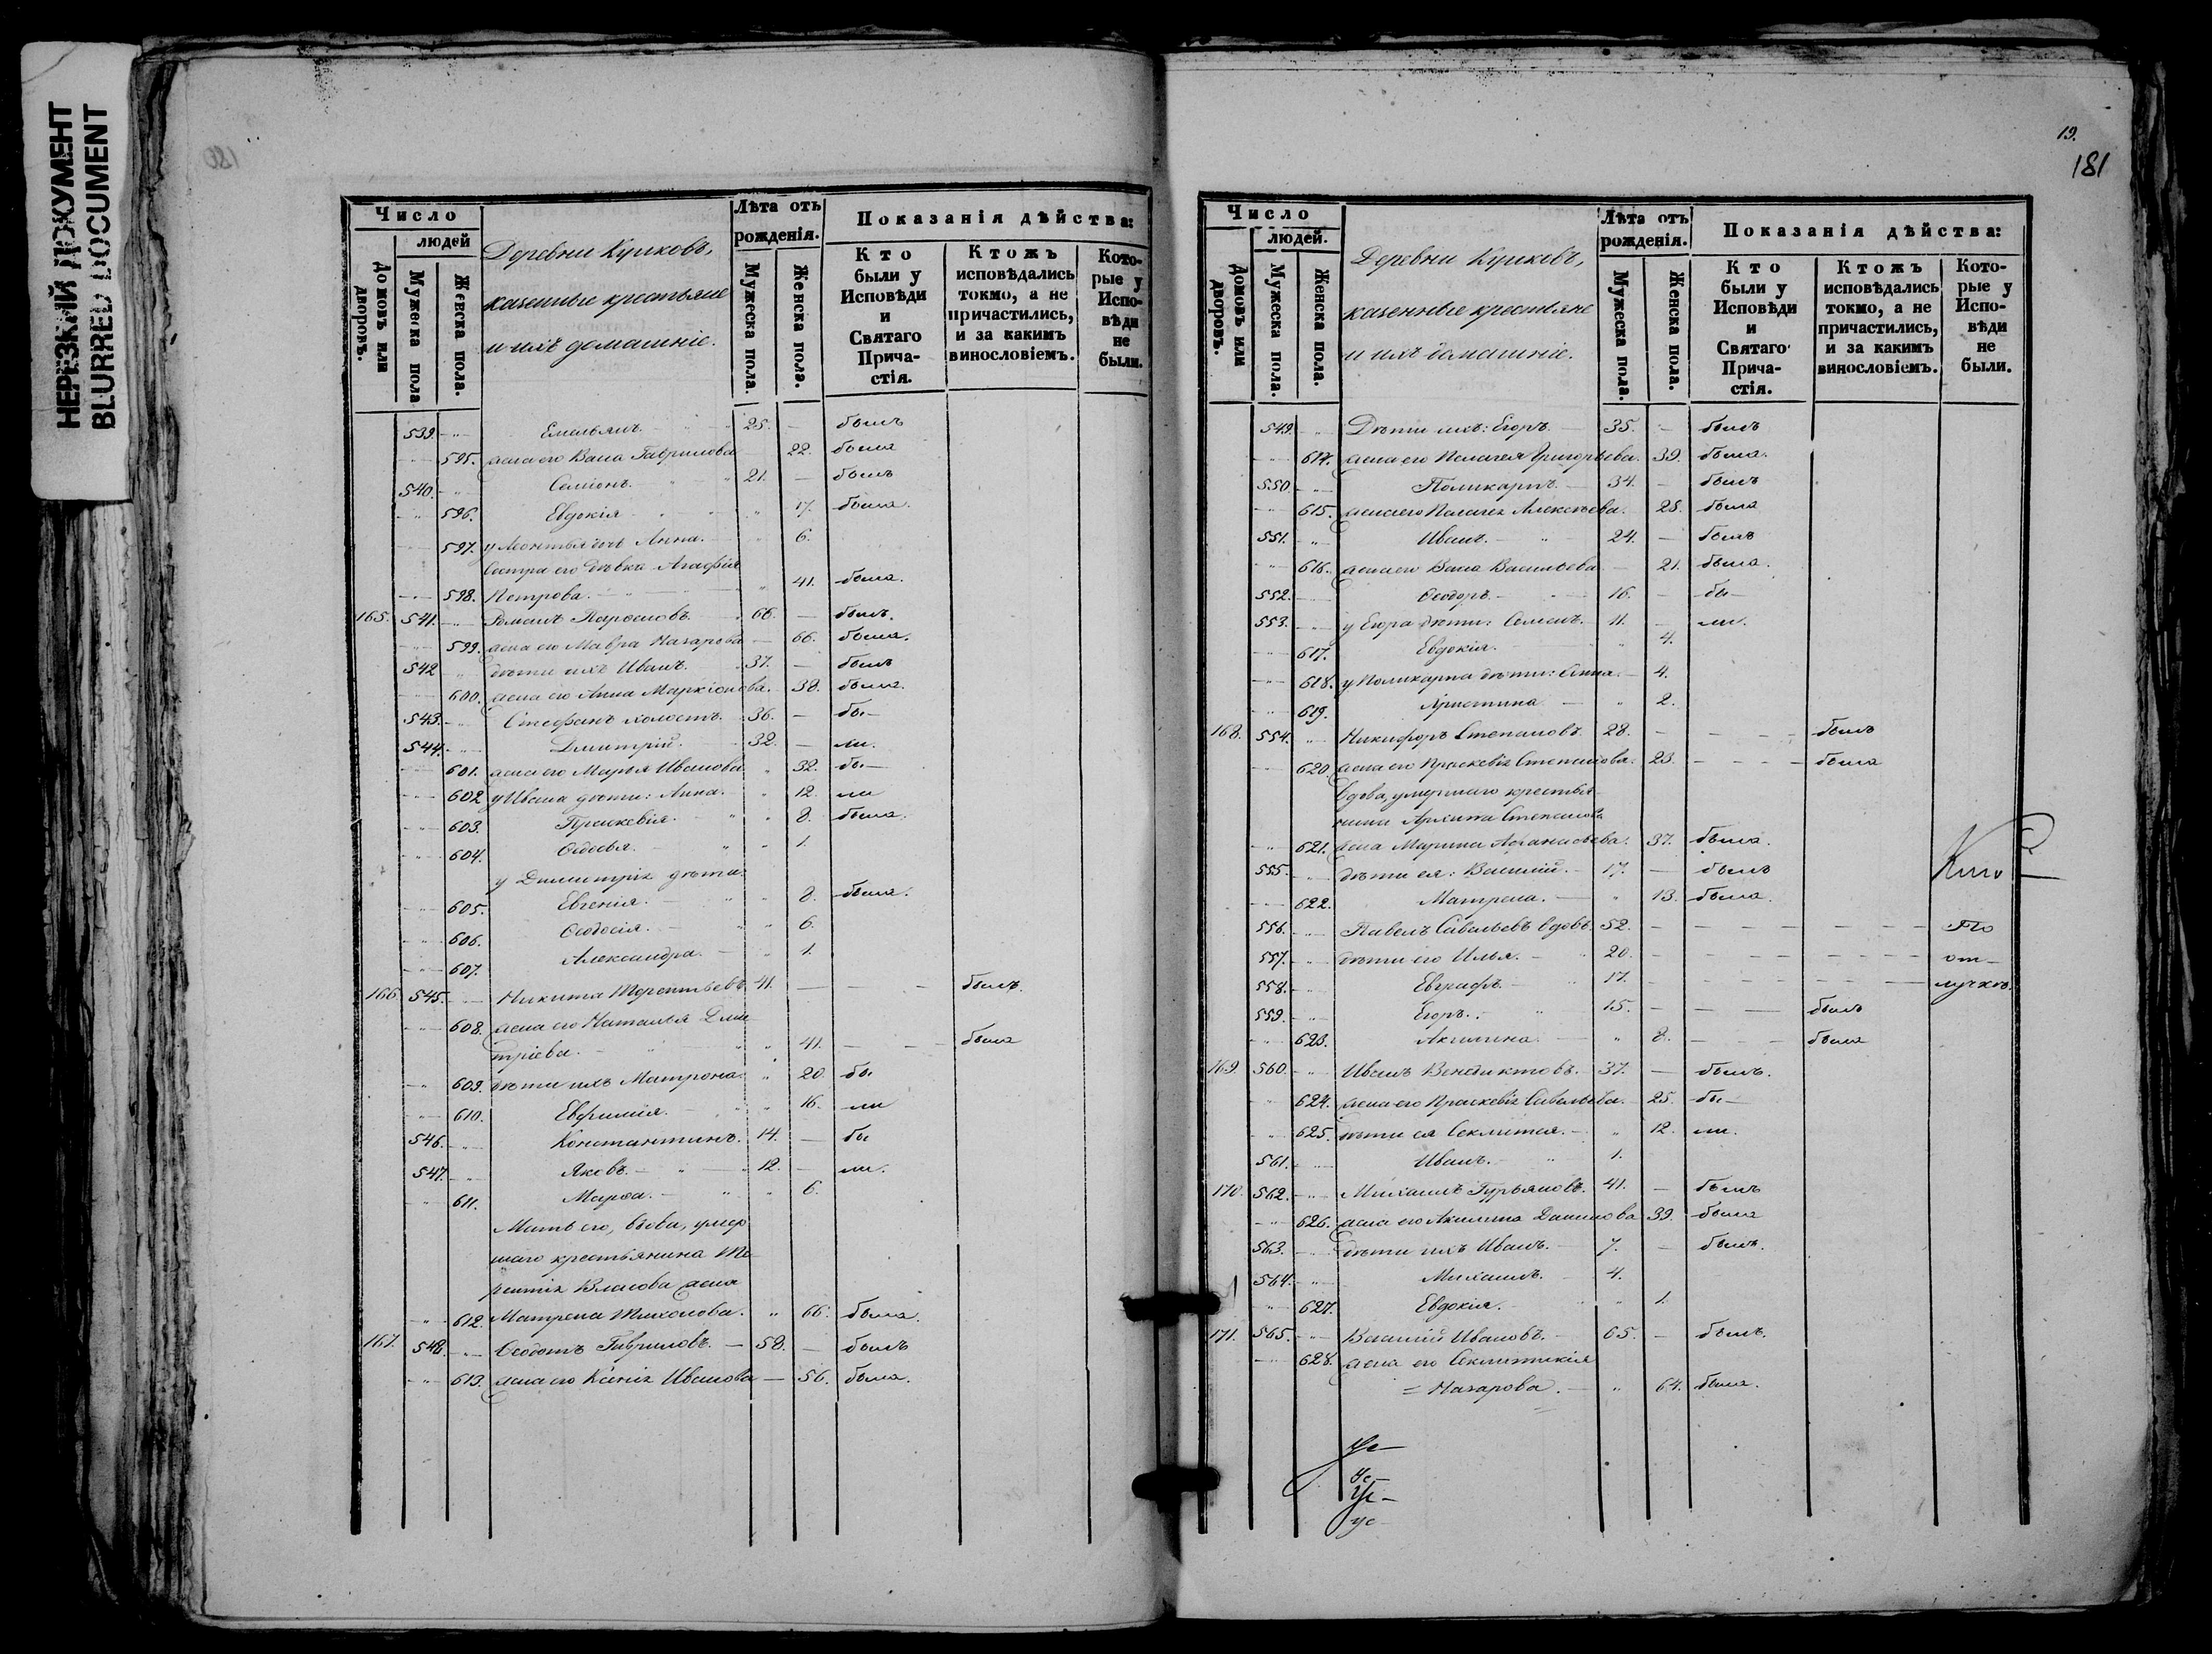 НЕРЕЗКИЙ ДОКУМЕНТ
BLURRED DOCUMENT
180
Число
людей
Домовъ или дворовъ.
Мужеска пола
Женска пола.
Деревни
казенные крестьяне
и ихъ домашніе.
Лѣта отъ рожденія.
Мужеска пола.
Женска пола.
Показанія дѣйства:
Кто были у Исповѣди и Святаго Причастія.
Ктожъ исповѣдались токмо, а не причастились, и за какимъ винословіемъ.
Которые у Исповѣди не были.
539. Емельянъ. 25. — былъ
595. жена его Гаврилова 22. была
540. Семіонъ. 21. — былъ
596. Евдокія 17. была.
597. у Леонтья дочь Анна. 6.
Сестра его дѣвка Агафія
598. Петрова. 41. была.
165. 541. Романъ 66. — былъ.
599. жена его Мавра Назарова — 66. была.
542 дѣти ихъ Иванъ. 37. — былъ
600. жена его Анна Маркіонова. 38. была.
543. Стефанъ холостъ. 36. — бы—
544. Дмитрій. 32. — ли.
601. жена его Марья Иванова 32. бы—
602 у Ивана дѣти: Анна. 12. ли
603. Праскевія. 8. была.
604. 1.
у Димитрія дѣти
605. Евгенія. 8. была.
606. Ѳеодосія. 6.
607. Александра. 1.
166 545. Никита Терентьевъ 41. — — — былъ.
608. жена его Наталья Дми
тріева. 41. — — была
609. дѣти ихъ Матрона 20. бы
610. Евфимія. 16. ли
546. Константинъ. 14. — бы
547. Яковъ. 12. — ли.
611. Марѳа. 6.
Мать его, вдова, умер
шаго крестьянина Те
рентія Власова жена
612. Матрена Тихонова. 66. была.
167. 548. Ѳеодотъ Гавриловъ. — 58. — былъ
613. жена его Ксенія Иванова — 56. была.
19.
181
Число
людей.
Домовъ или дворовъ.
Мужеска пола.
Женска пола.
Деревни
казенные крестьяне
и ихъ домашніе.
Лѣта отъ рожденія.
Мужеска пола.
Женска пола.
Показанія дѣйства:
Кто были у Исповѣди и Святаго Причастія.
Ктожъ исповѣдались токмо, а не причастились, и за какимъ винословіемъ.
Которые у Исповѣди не были.
549. Дѣти ихъ: Егоръ. 35. — былъ
614. жена его Пелагея Григорьева. 39. была.
550. Поликарпъ. 34. — былъ
615. жена его Пелагея Алексѣева. 28. была
551. Иванъ. 24. — былъ
616. жена его Васильева — 21. была.
552. Ѳеодоръ. 16. — бы—
553. у Егора дѣти: Семенъ. 11. — ли.
617. Евдокія. 4.
618. у Поликарпа дѣти: Анна. — 4.
619. Христина — 2.
168. 554. Никифоръ Степановъ. 28. — — — былъ
620. жена его Праскевія Степанова. 23. — — — была
Вдова, умершаго крестья
нина Архипа Степанова
621. жена Марина Аѳанасьева. 37. была.
555. дѣти ея: Василій. — 17. — былъ
622. Матрена. — 13. была.
556. Павелъ Савельевъ вдовъ. 52. — — — по
557. дѣти его Илья. 20. — — — от—
558. Евграфъ. 17. — — — лучкѣ.
559. Егоръ. 15. — — былъ
623. Акилина. 8. — — была
169. 560. Иванъ Венедиктовъ. — 37. — былъ.
624. жена его Праскевія Савельева. 25. бы—
625. дѣти ея Секлитея. 12. ли.
561. Иванъ. 1.
170. 562. Михаилъ Гурьяновъ. 41. — былъ
626. жена его Акилина Данилова 39. была
563. дѣти ихъ Иванъ. 7. — былъ.
564. Михаилъ. 4.
627. Евдокія. 1.
171. 565. Василій Ивановъ. 65. — былъ.
628. жена его Секлитикія
= Назарова. 64. была.